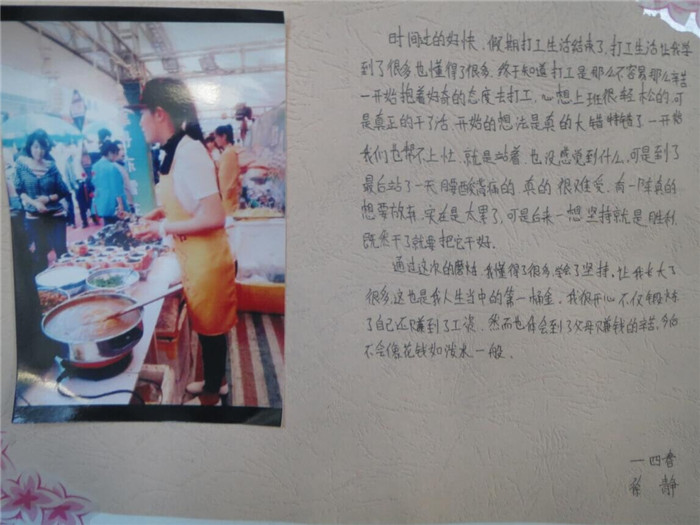 时间过的好快、假期打工生活结束了、打工生活让我学
到了很多也懂得了很多、终于知道打工是那么不容易那么辛苦
一开始抱着好奇的态度去打工、心想上班很轻松的、可
是真正的干了活、开始的想法是真的大错特错了一开始
我们也帮不上忙、就是站着、也没感觉到什么、可是到了
最后站了一天腰酸背痛的、真的很难受、有一阵真的
想要放弃、实在是太累了、可是后来一想坚持就是胜利、
既然干了就要把它干好、
通过这次的磨练、我懂得了很多、学会了坚持、让我长大了
很多这也是我人生当中的第一桶金、我很开心不仅锻炼
了自己还赚到了工资、然而也体会到了父母赚钱的辛苦、今后
不会像花钱如流水一般、
一四会
徐 静